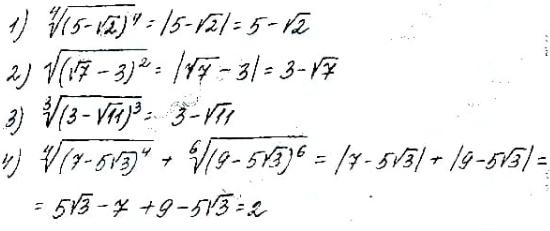 1) ∜(5-√2)⁴ = |5-√2| = 5-√2
2) √(√7-3)² = |√7-3| = 3-√7
3) ∛(3-√11)³ = 3-√11
4) ∜(7-5√3)⁴ + ⁶√(9-5√3)⁶ = |7-5√3| + |9-5√3| =
= 5√3-7 + 9-5√3 = 2